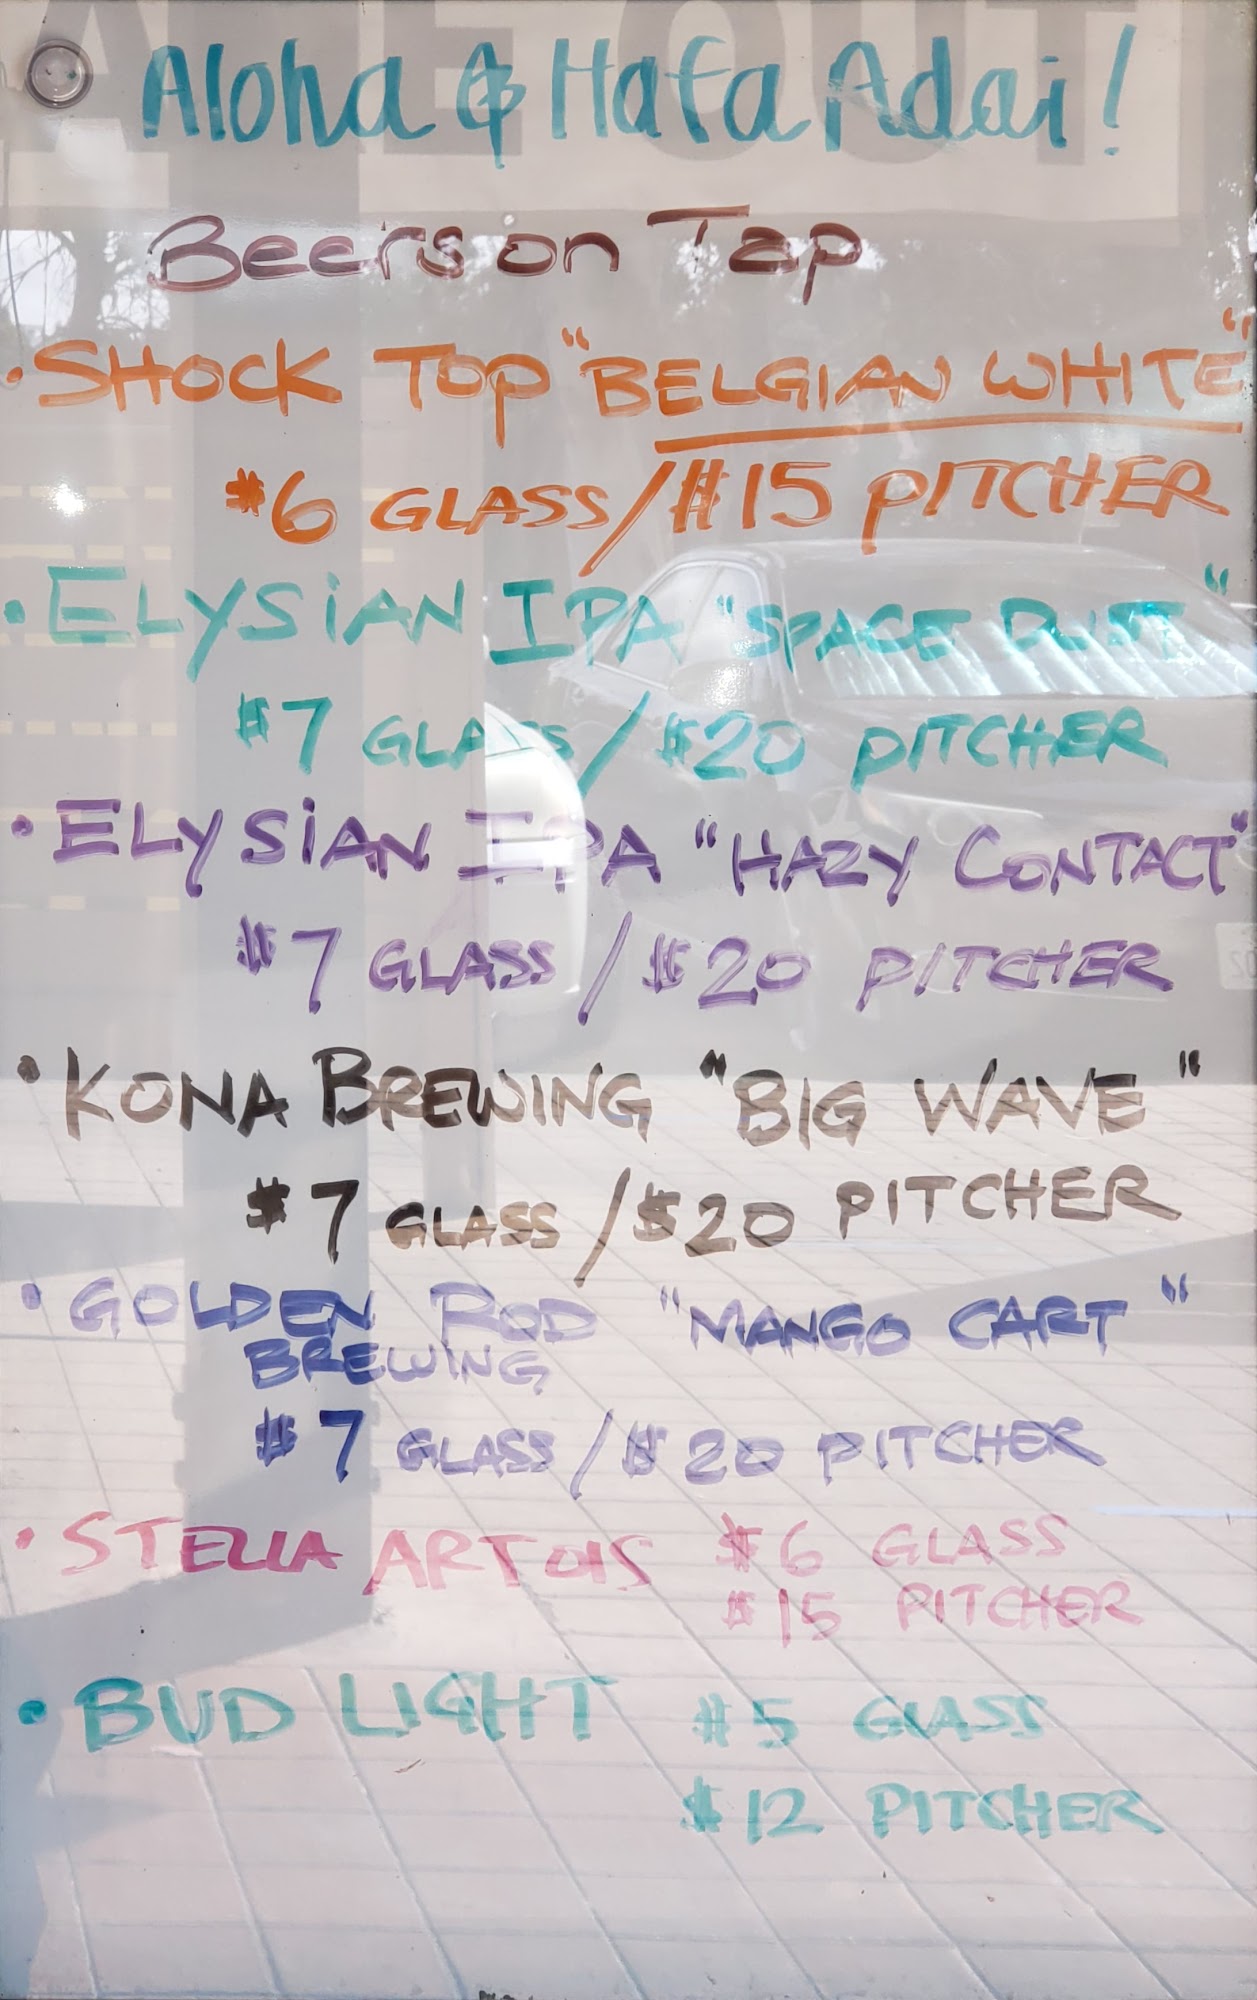 Aloha & Hafa Adai!
Beers on Tap
• SHOCK TOP "BELGIAN WHITE"
$6 GLASS/$15 PITCHER
• ELYSiAN IPA "SPACE DUST"
$7 GLASS/$20 PITCHER
• ELYSiAN IPA "HAZY CONTACT"
$7 GLASS/$20 PITCHER
• KONA BREWING "BIG WAVE"
$7 GLASS/$20 PITCHER
• GOLDEN ROD "MANGO CART"
BREWING
$7 GLASS/$20 PITCHER
• STELLA ARTOIS $6 GLASS
$15 PITCHER
• BUD LIGHT $5 GLASS
$12 PITCHER